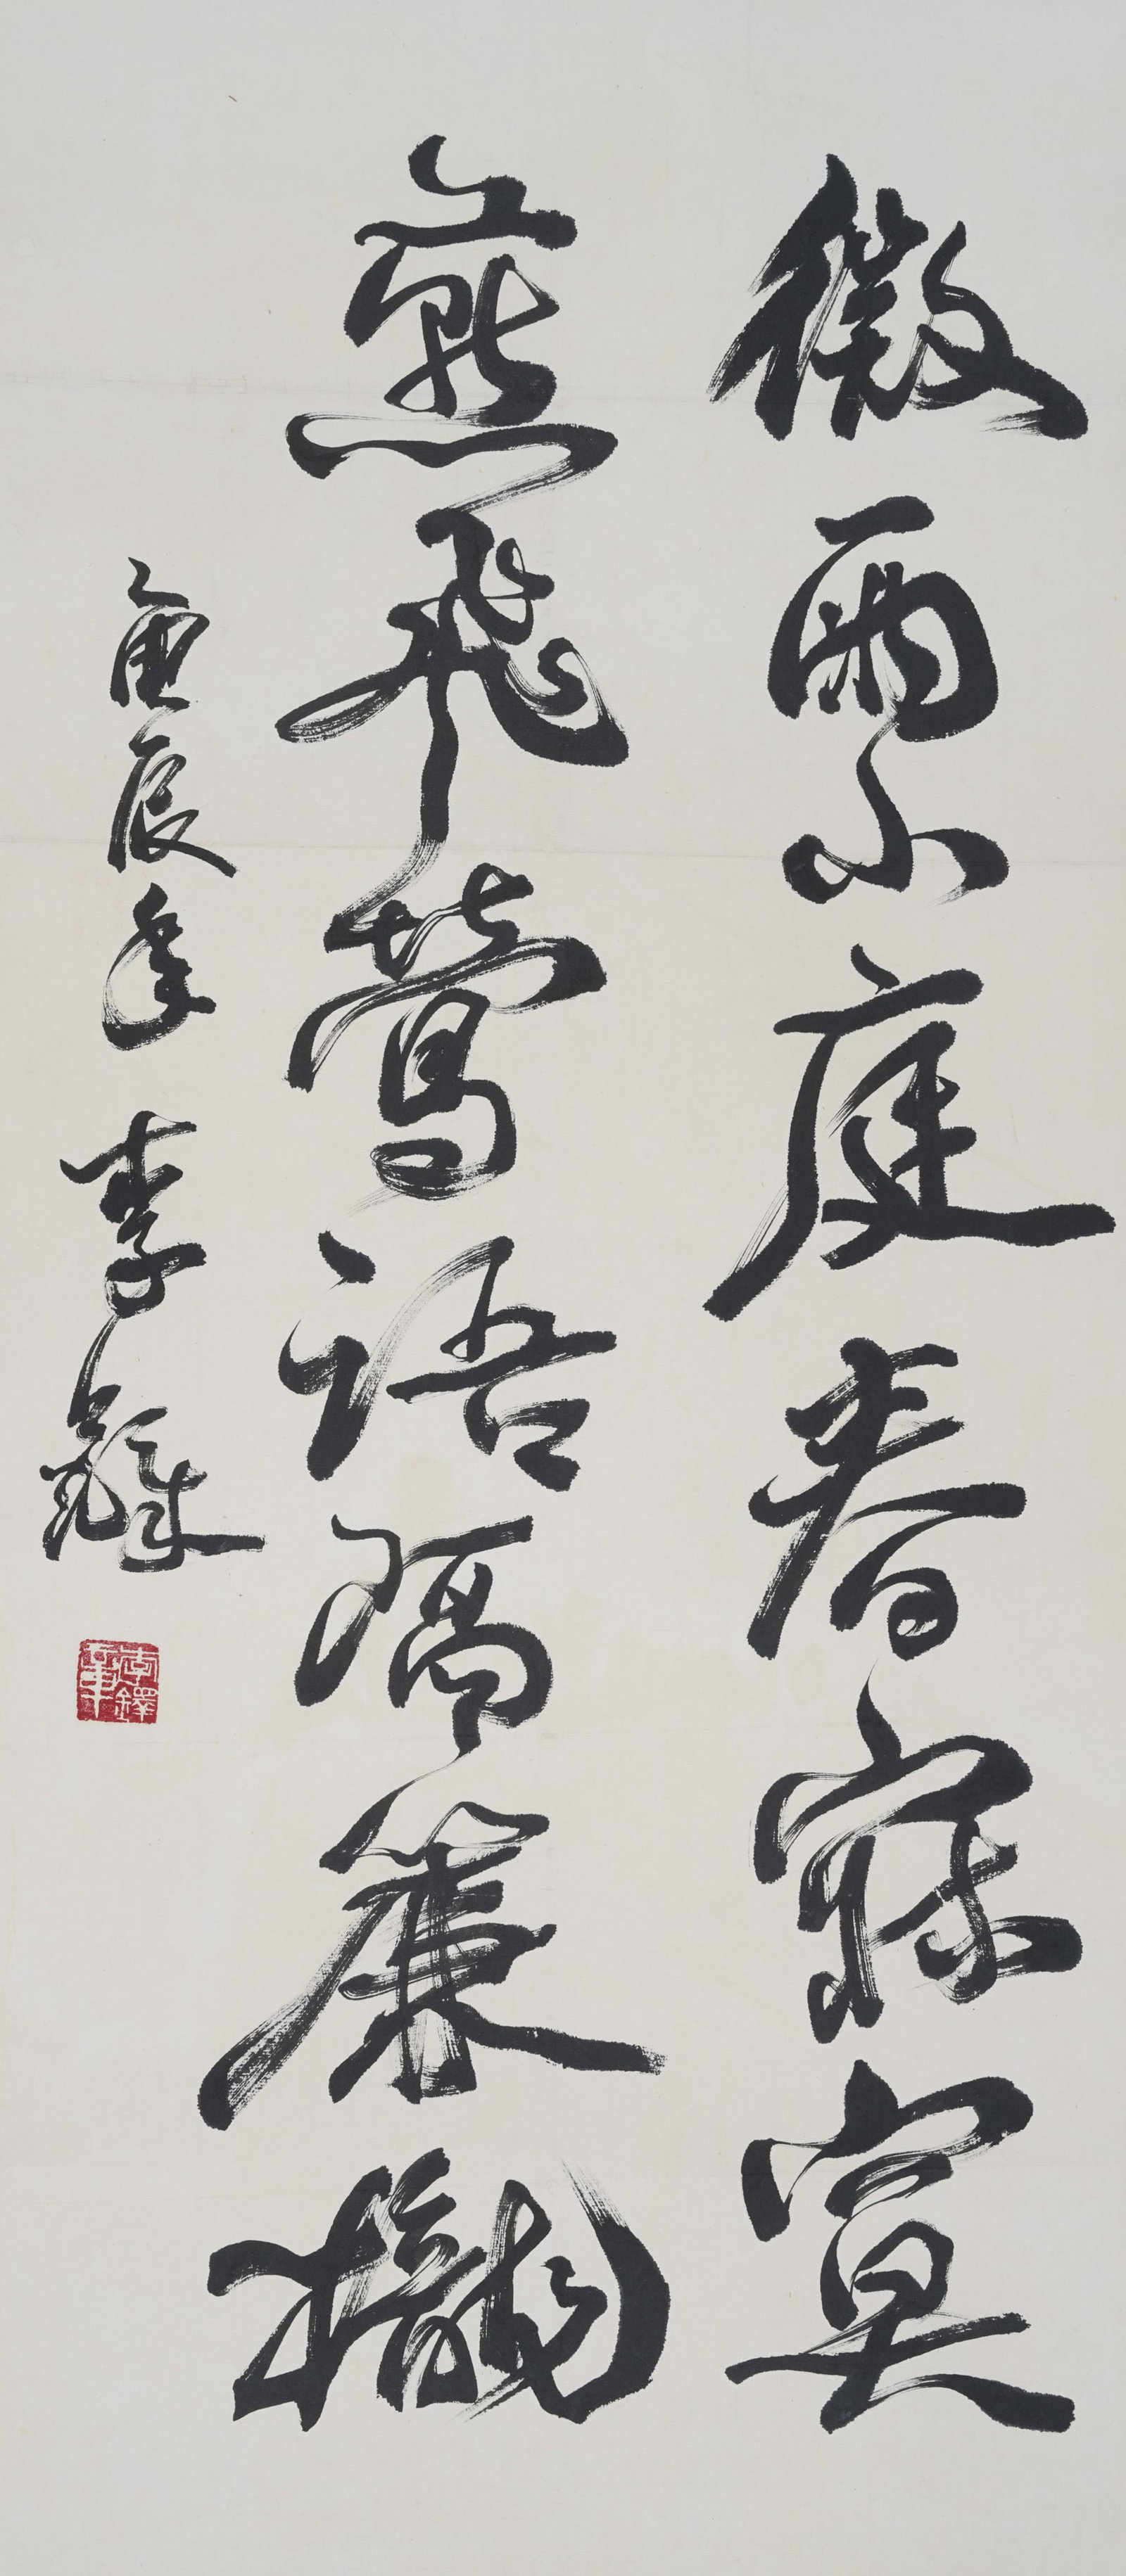 微雨小庭春寂寞
燕飛鶯語隔簾櫳
庚辰年 李鐸
李鐸